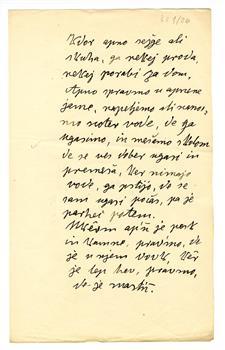 Kdor apno režje ali
kuha, ga nekej proda,
nekej porabi za dom.
Apno spravmo u apnene
jame, napeljemo ali nanos-
mo noter vode, de ga
ugasimo, in mešamo s kolom
de se ves dober ugasi in
premeša. Ker nimajo
vode, ga pstijo, de se
sam ugasi počas, pa je
parhek potem.
apn je pesk
in kamne, pravimo, de
je u njem vouk. Ker
je lep, pravimo,
de je mastn.